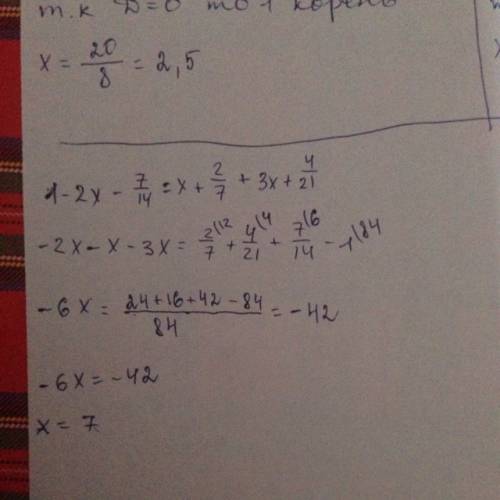 т.к D=0 то 1 корень
x = 20/8 = 2,5
1-2x - 7/14 = x + 2/7 + 3x + 4/21
-2x - x - 3x = 2/7\12 + 4/21\4 + 7/14\6 - 1\84
-6x = (24+16+42-84)/84 = -42
-6x = -42
x = 7